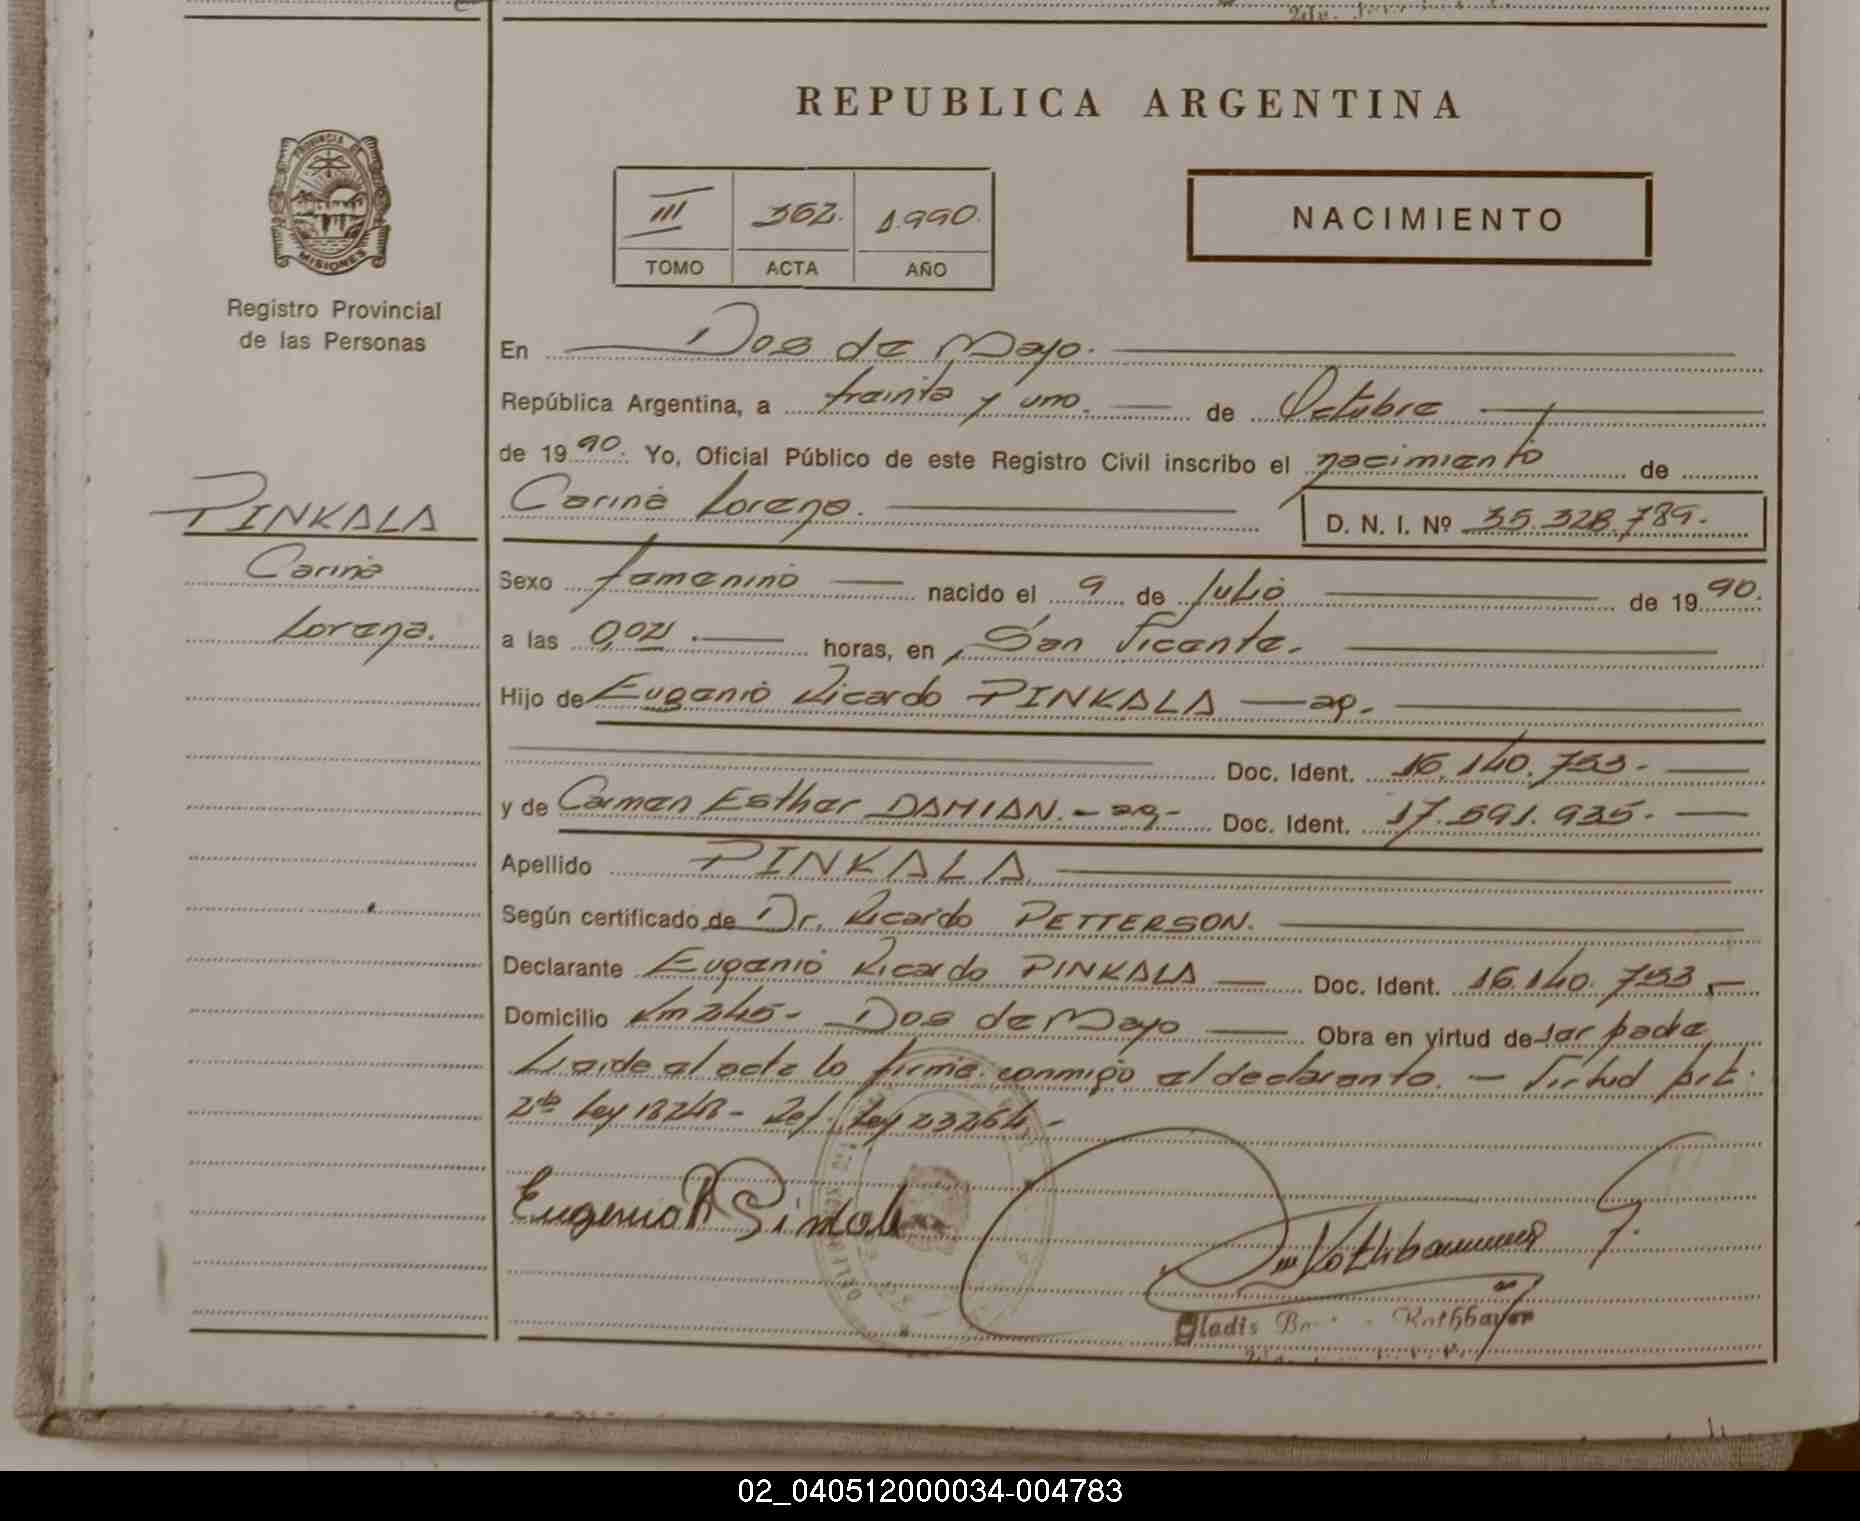 REPUBLICA ARGENTINA
PROVINCIA DE
MISIONES
Registro Provincial
de las Personas
III 362. 1.990.
TOMO ACTA AÑO
NACIMIENTO
En Dos de Mayo.
República Argentina, a treinta y uno. de Octubre
de 1990. Yo, Oficial Público de este Registro Civil inscribo el nacimiento de
Carina Lorena. D. N. I. Nº 35.328.789.
PINKALA
Carina
Lorena.
Sexo femenino nacido el 9 de Julio de 1990.
a las 0,02 horas, en San Vicente.
Hijo de Eugenio Ricardo PINKALA — ag.
Doc. Ident. 16.140.753.
y de Carmen Esther DAMIAN. - ag- Doc. Ident. 17.591.935.
Apellido PINKALA
Según certificado de Dr. Ricardo PETTERSON.
Declarante Eugenio Ricardo PINKALA Doc. Ident. 16.140.753
Domicilio Km 245- Dos de Mayo Obra en virtud de ser padre
Leida el acta lo firma conmigo el declarante. — Virtud Art.
2do Ley 18248- Ref. Ley 23264-
Eugenio R
Rothbauer
02_040512000034-004783